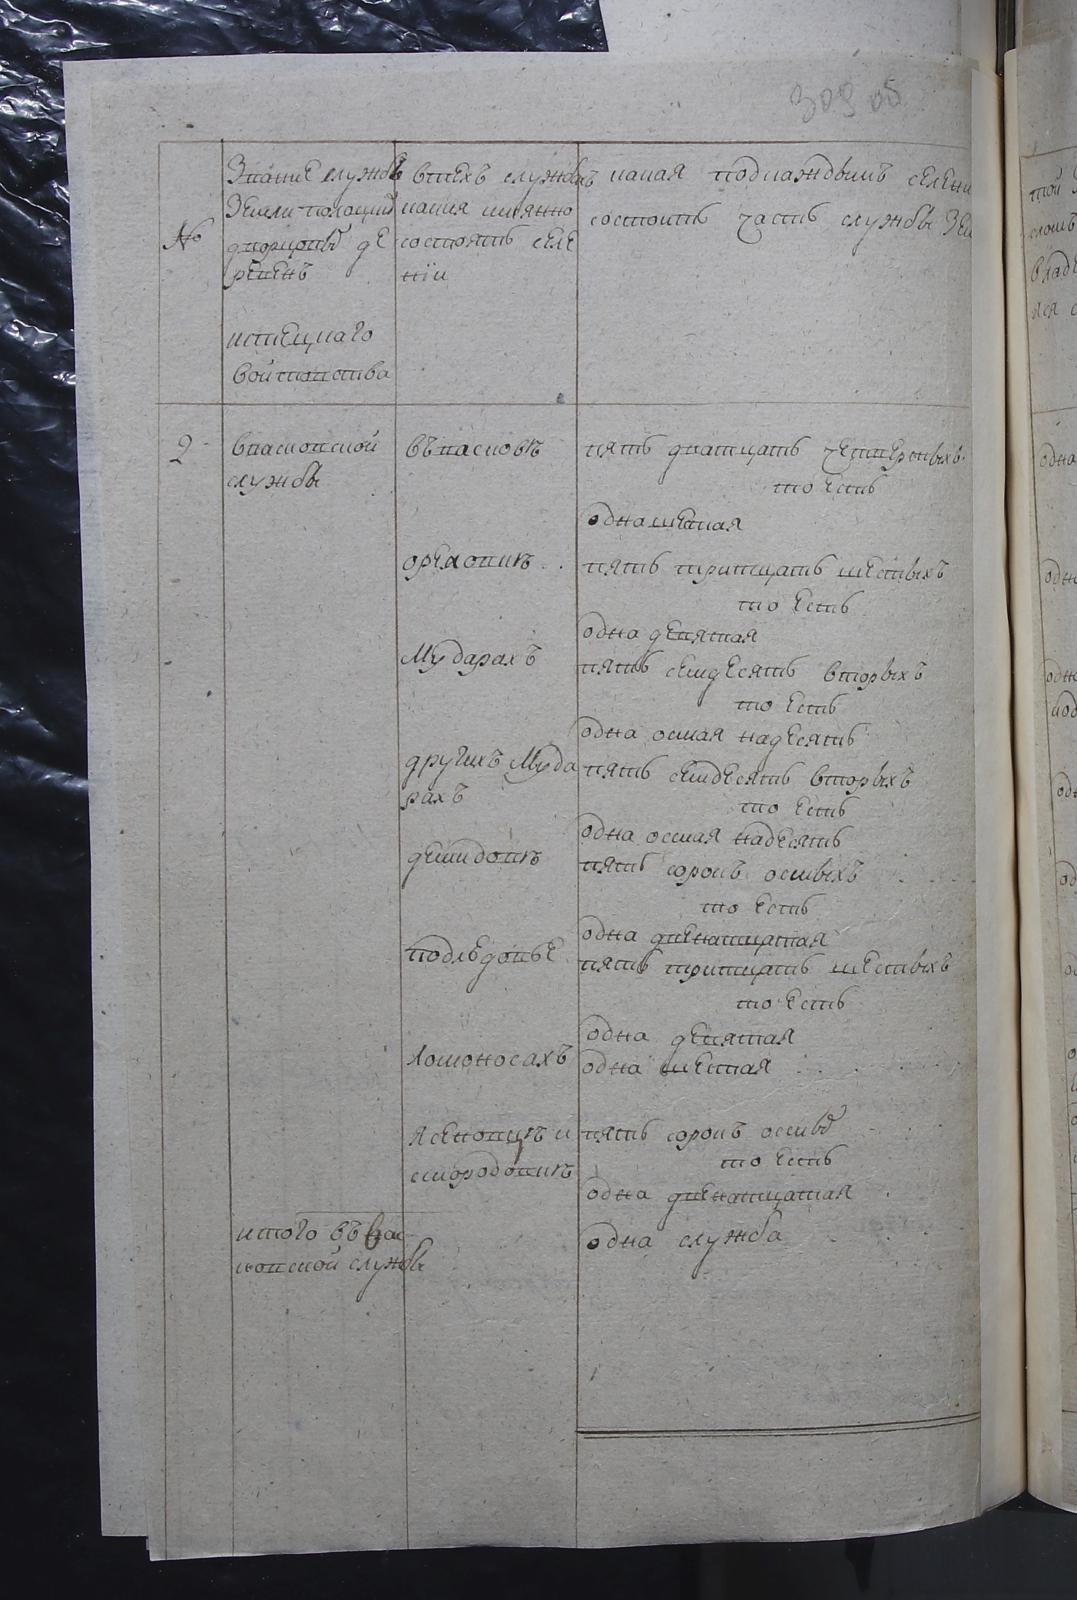 309 об
№
Звание службъ
Земли пологаций
дворцовыѣ де
ревень
истецкаго
войтовства
втехъ службахъ
какия имянно
состоятъ селе
нïи
какая подкаждымъ селени
состоитъ часть службы Зем
2
вкасковской
службы
въкасковѣ
пять дватцать четвертыхъ
то есть
одна шестая
ореховкѣ
пять тритцать шестыхъ
то есть
одна девятая
Мударахъ
пять семдесятъ вторыхъ
то есть
одна осмая надесять
другихъ Муда
рахъ
пять семдесятъ вторыхъ
то есть
одна осмая надесять
демидовкѣ
пять сорокъ осмыхъ
то есть
одна двенатцатая
подледовье
пять тритцать шестыхъ
то есть
одна девятая
ломоносахъ
одна шестая
ясеновцѣ и
смородовкѣ
пять сорокъ осмыѣ
то есть
одна двенатцатая
итого въ вас
ковской службы
одна служба